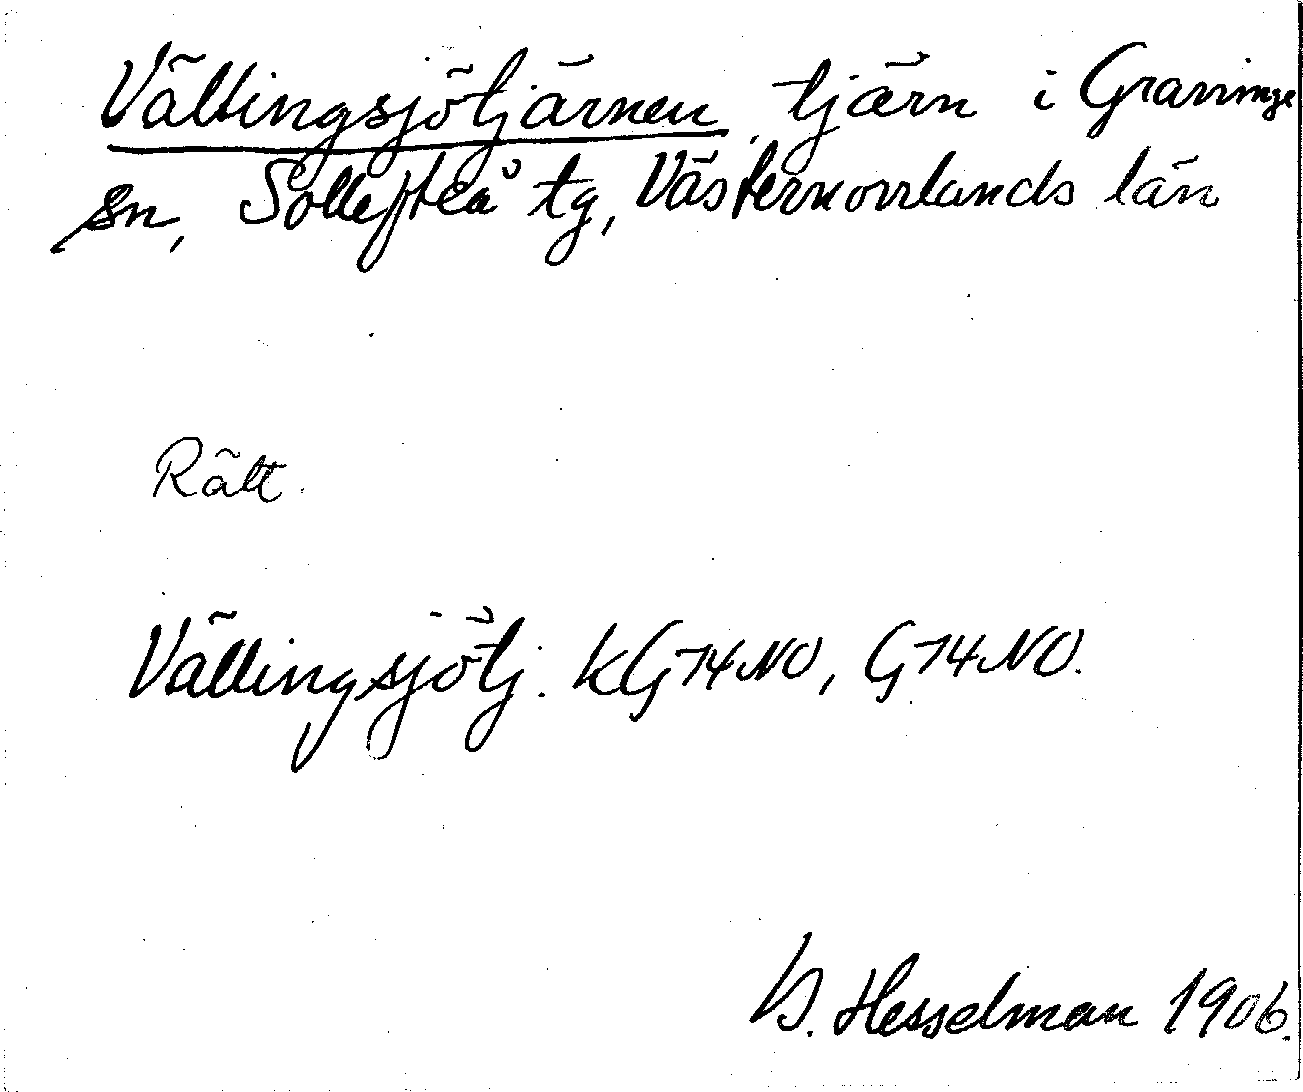 Vällingsjötjärnen, tjärn i Graninge
sn, Sollefteå tg, Västernorrlands län
Rätt.
Vällingsjötj. KG74NO, G74NO.
B. Hesselman 1906.